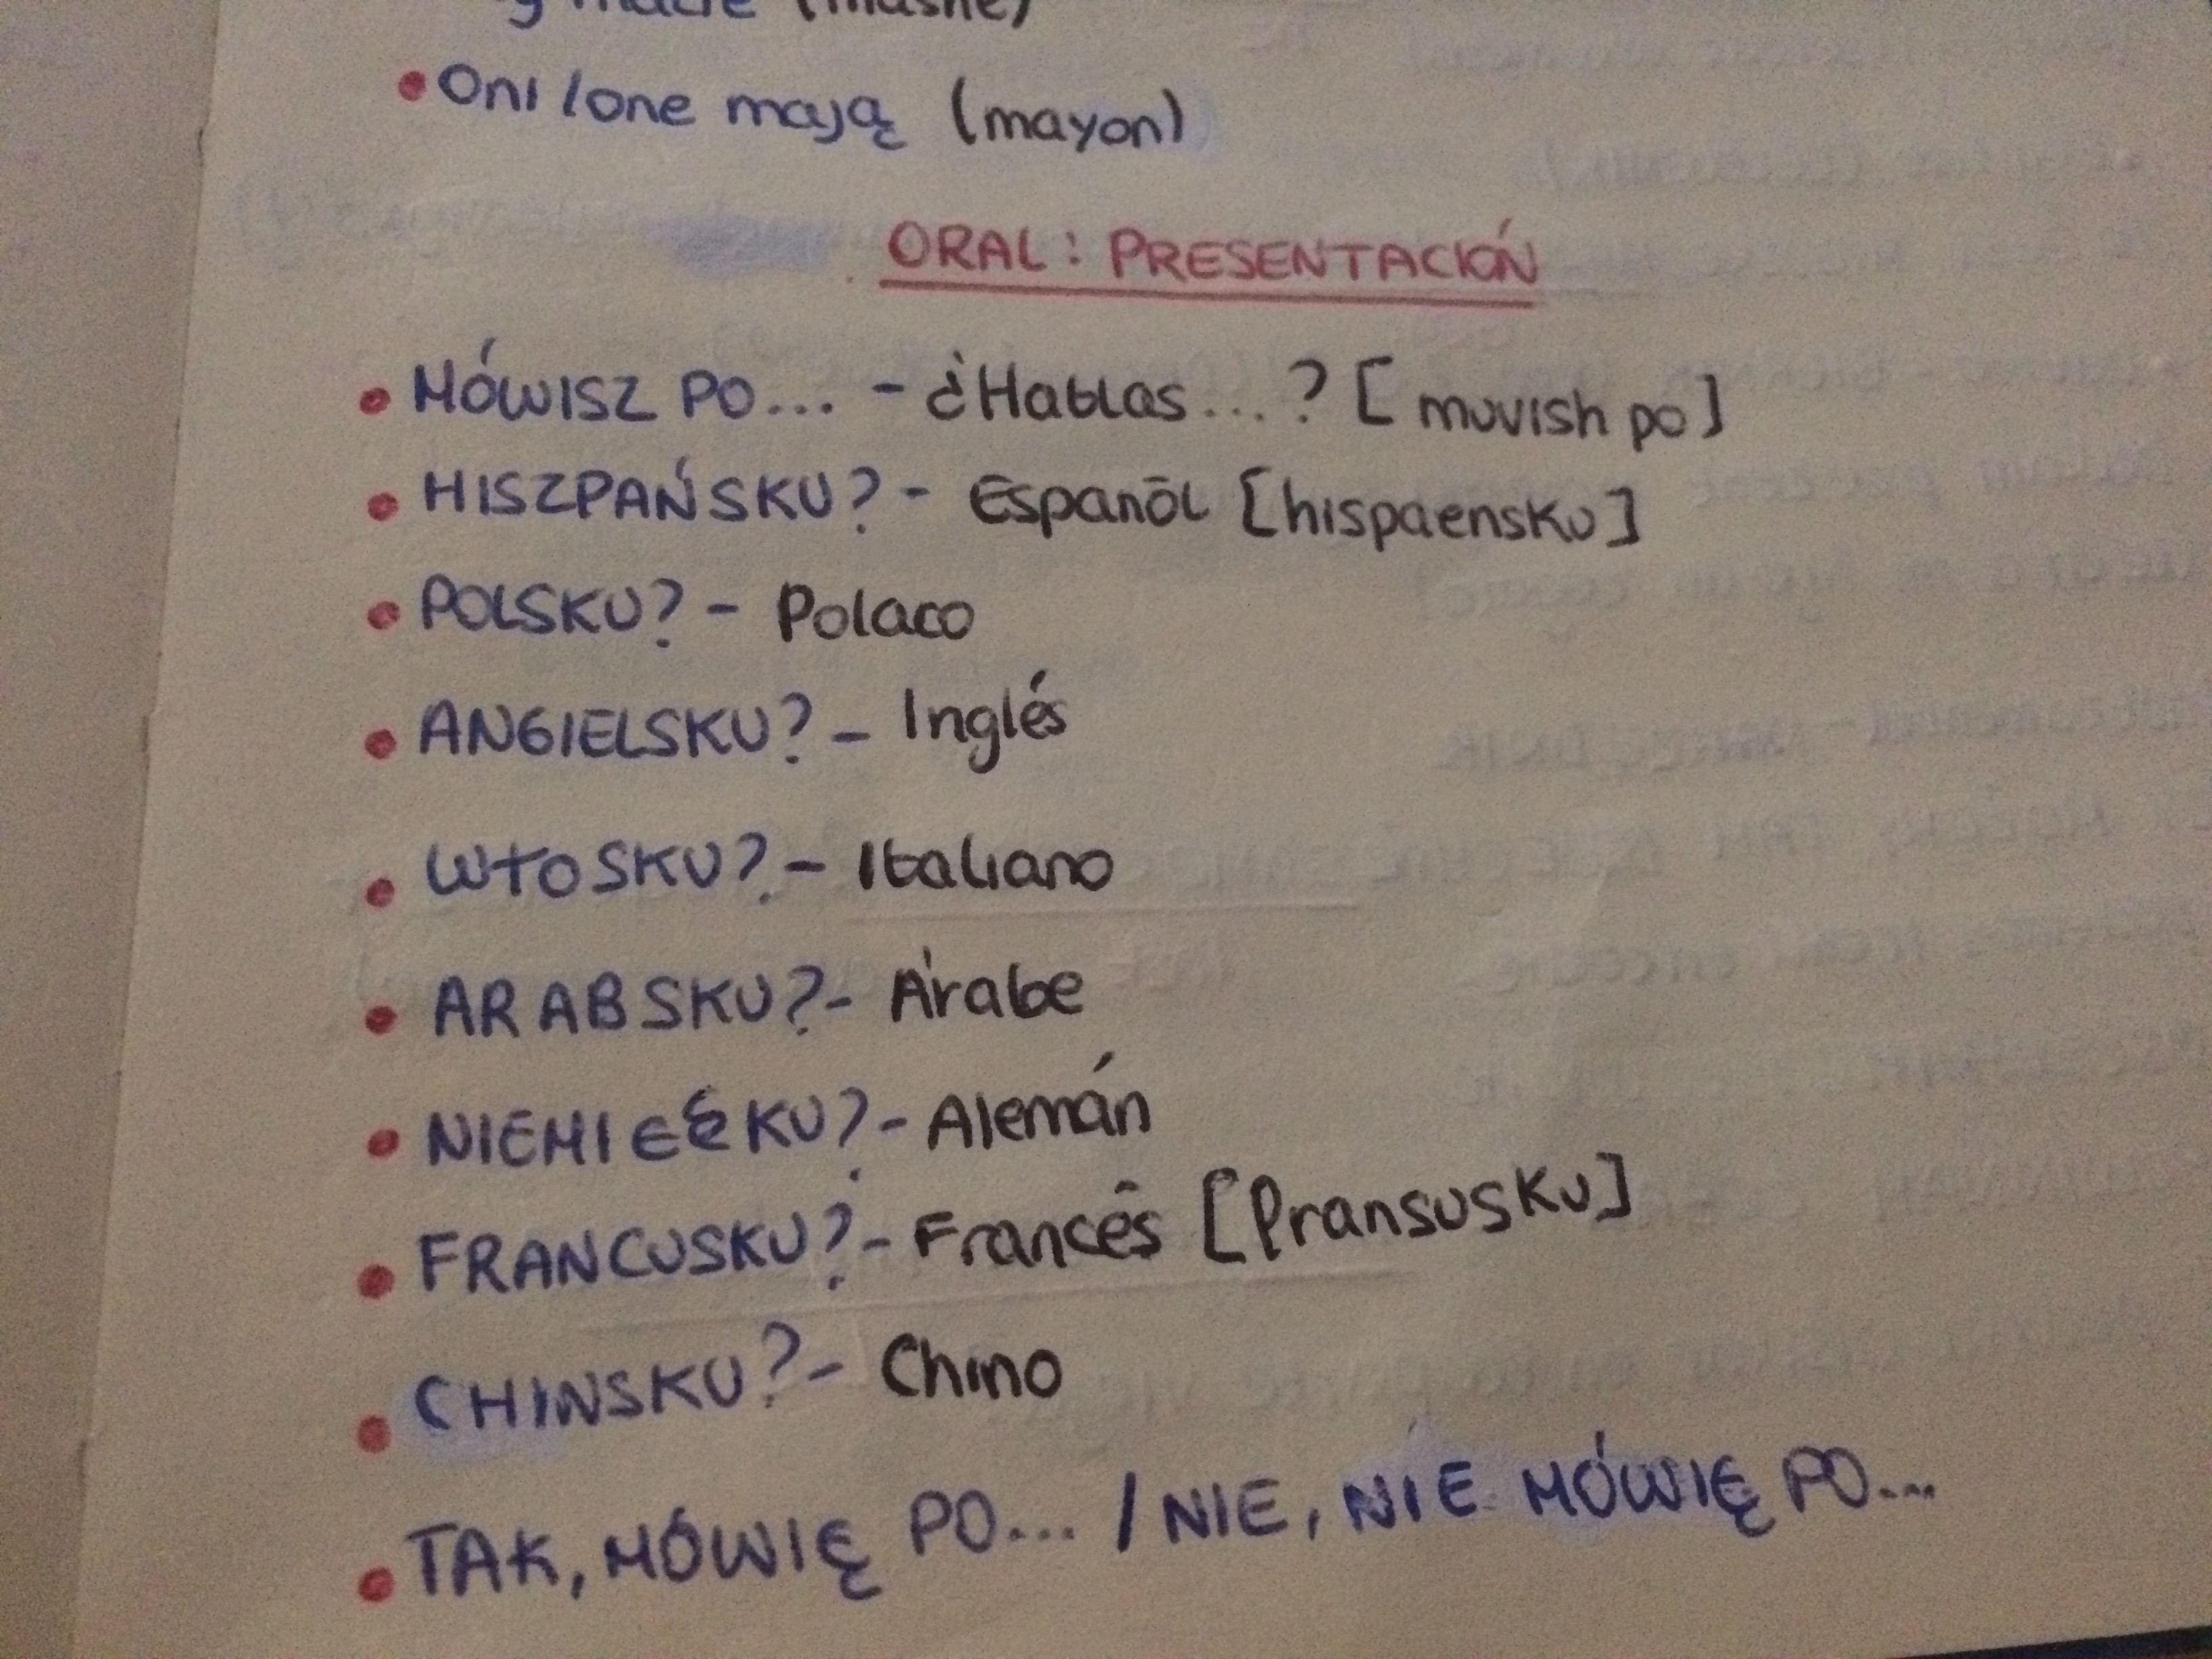 macie (mashie)
• Oni/one mają (mayon)
ORAL: PRESENTACIÓN
• MÓWISZ PO... - ¿Hablas...? [muvish po]
• HISZPAŃSKU? - Espanōl [hispaensku]
• POLSKU? - Polaco
• ANGIELSKU? - Inglés
• WŁOSKU? - Italiano
• ARABSKU? - Árabe
• NIEMIECKU? - Alemán
• FRANCUSKU? - Francês [Pransusku]
• CHINSKU? - Chino
• TAK, MÓWIĘ PO... / NIE, NIE MÓWIĘ PO...